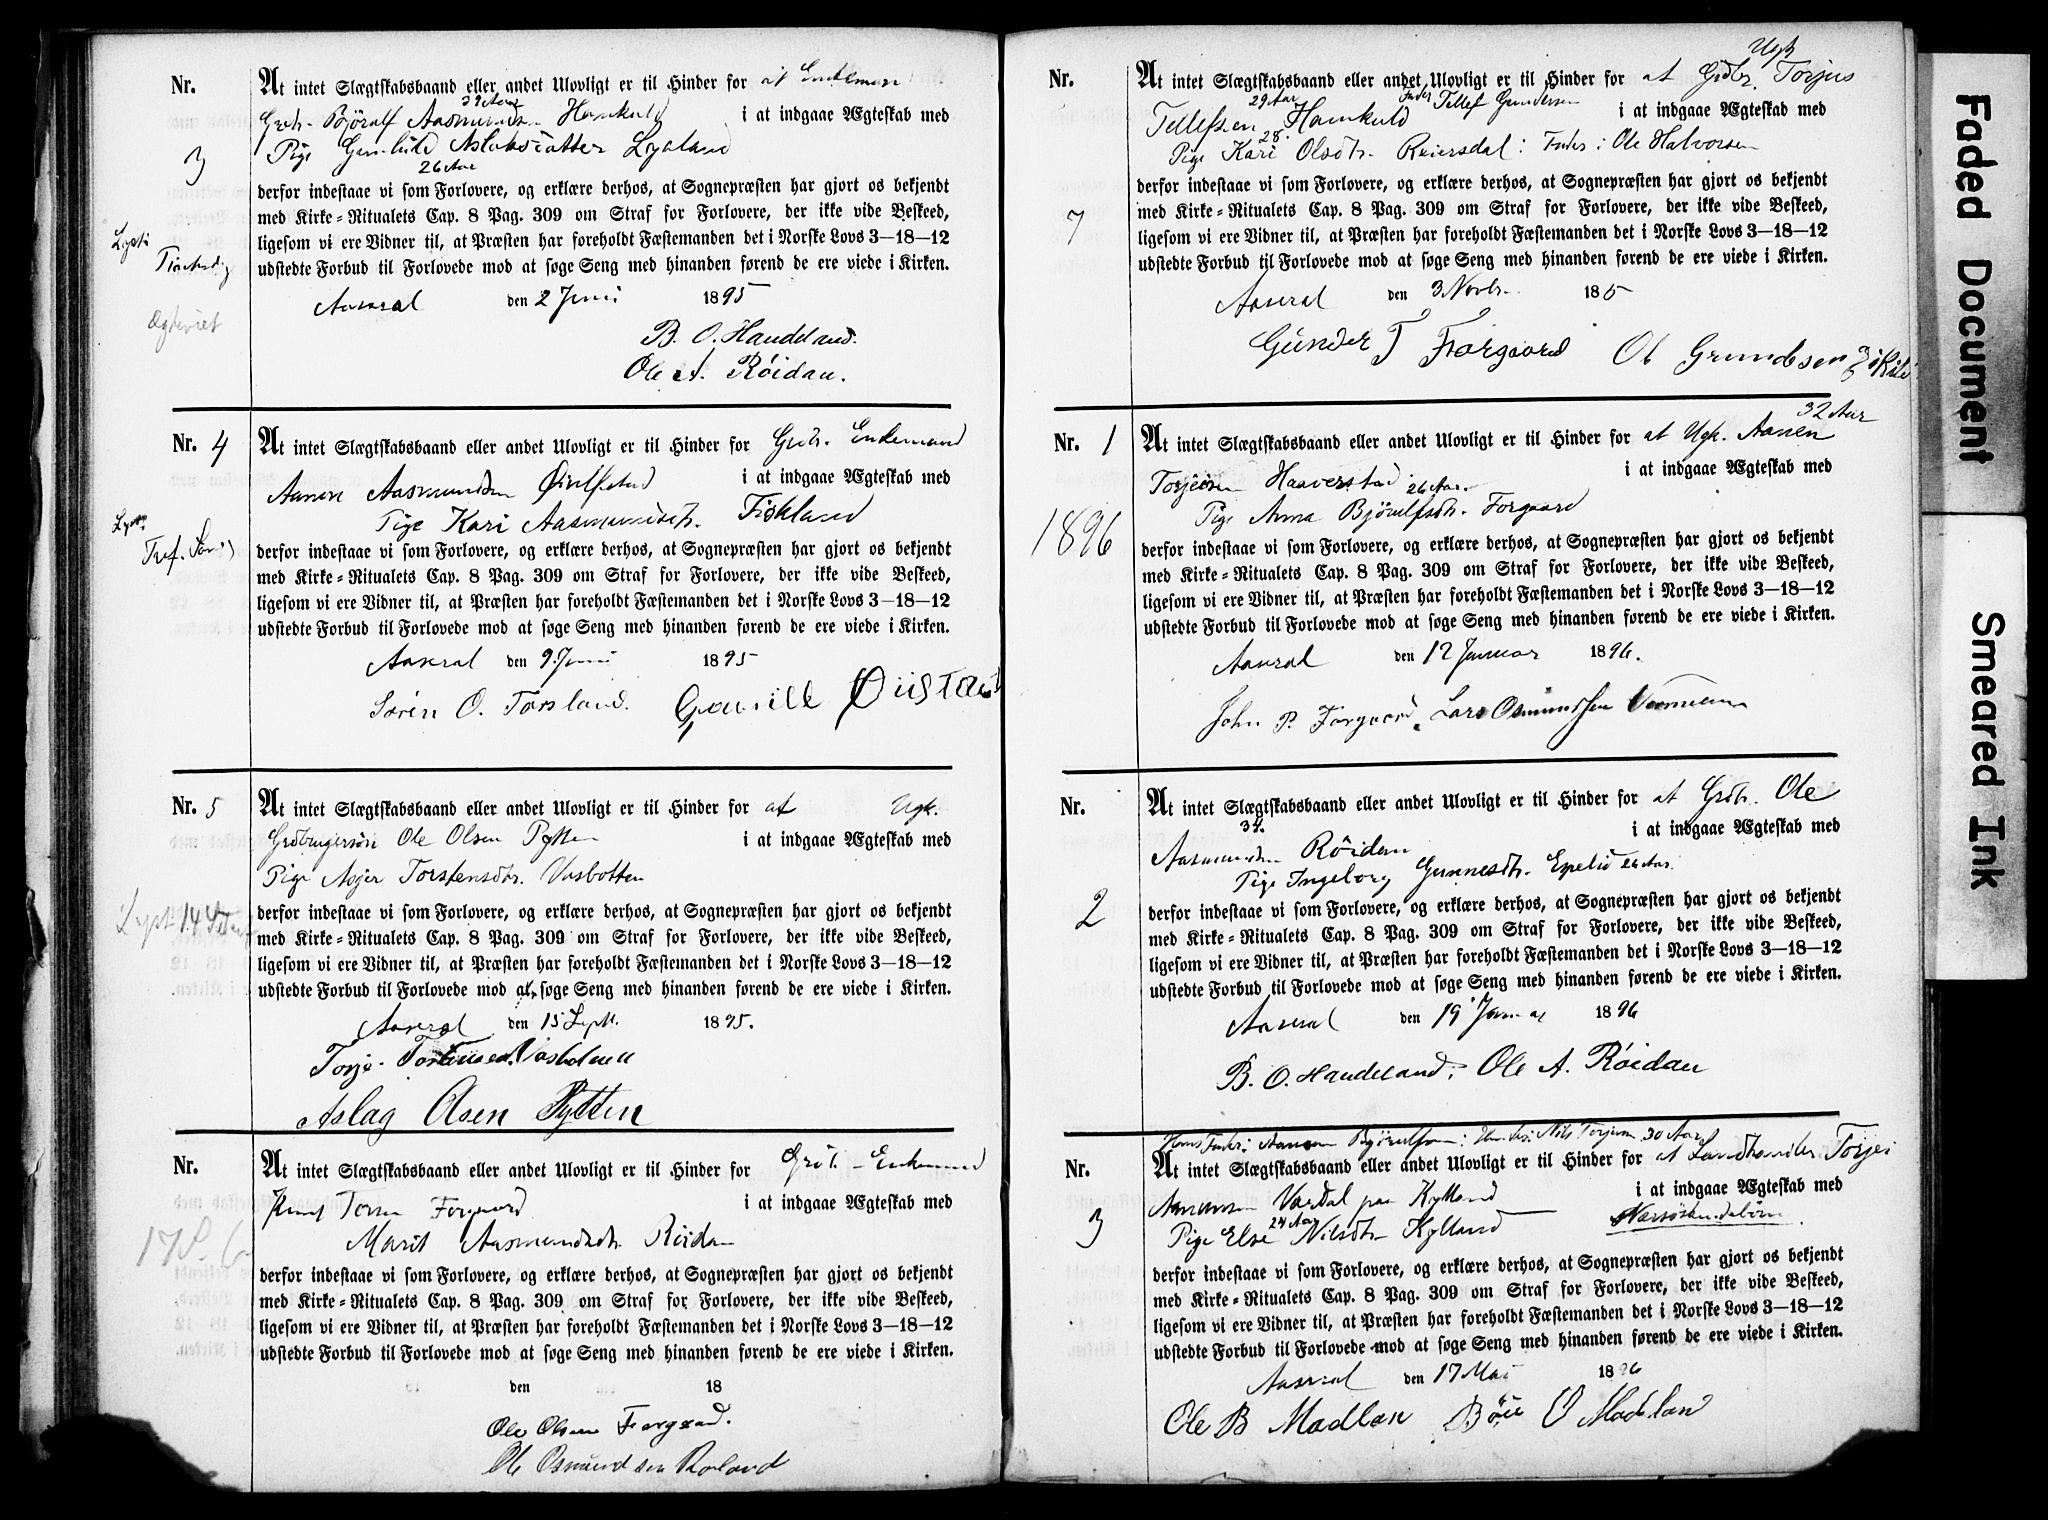 Nr.
3
At intet Slægtskabsbaand eller andet Ulovligt er til Hinder for at Enkemand
39 Aar
Grdbr. Bjøralf Aasmundsen Homkuld i at indgaae Ægteskab med
Pige Gunhild Aslaksdatter Ljosland
26 Aar
derfor indestaae vi som Forlovere, og erklære derhos, at Sognepræsten har gjort os bekjendt
med Kirke-Ritualets Cap. 8 Pag. 309 om Straf for Forlovere, der ikke vide Beskeed,
ligesom vi ere Vidner til, at Præsten har foreholdt Fæstemanden det i Norske Lovs 3—18—12
udstedte Forbud til Forlovede mod at søge Seng med hinanden førend de ere viede i Kirken.
Aaseral den 2 Juni 1895
B. O. Haudeland.
Ole A. Røidan.
Nr. 4
At intet Slægtskabsbaand eller andet Ulovligt er til Hinder for Grdbr. Enkemand
Aanen Aasmundsen i at indgaae Ægteskab med
Pige Kari Aasmundsdtr. Fiskland
derfor indestaae vi som Forlovere, og erklære derhos, at Sognepræsten har gjort os bekjendt
med Kirke-Ritualets Cap. 8 Pag. 309 om Straf for Forlovere, der ikke vide Beskeed,
ligesom vi ere Vidner til, at Præsten har foreholdt Fæstemanden det i Norske Lovs 3—18—12
udstedte Forbud til Forlovede mod at søge Seng med hinanden førend de ere viede i Kirken.
Aaseral den 9. Juni 1895
Søren O. Torsland.
Nr. 5
At intet Slægtskabsbaand eller andet Ulovligt er til Hinder for at Ugk.
Grdbrugersøn Ole Olsen Pytten i at indgaae Ægteskab med
Pige Asjer Torstensdtr. Vasbotten
derfor indestaae vi som Forlovere, og erklære derhos, at Sognepræsten har gjort os bekjendt
med Kirke-Ritualets Cap. 8 Pag. 309 om Straf for Forlovere, der ikke vide Beskeed,
ligesom vi ere Vidner til, at Præsten har foreholdt Fæstemanden det i Norske Lovs 3—18—12
udstedte Forbud til Forlovede mod at søge Seng med hinanden førend de ere viede i Kirken.
Aaseral den 15 Septb. 1895.
Aslag Olsen Pytten
Nr.
At intet Slægtskabsbaand eller andet Ulovligt er til Hinder for Grdb. Enkemand
Knut Forgaard i at indgaae Ægteskab med
Marit Aasmundsdtr. Røidan
derfor indestaae vi som Forlovere, og erklære derhos, at Sognepræsten har gjort os bekjendt
med Kirke-Ritualets Cap. 8 Pag. 309 om Straf for Forlovere, der ikke vide Beskeed,
ligesom vi ere Vidner til, at Præsten har foreholdt Fæstemanden det i Norske Lovs 3—18—12
udstedte Forbud til Forlovede mod at søge Seng med hinanden førend de ere viede i Kirken.
den 18
Ole Olsen Forgaard.
Ole Osmundsen Røland
Nr.
7
Ugk
At intet Slægtskabsbaand eller andet Ulovligt er til Hinder for at Grdbr. Torjus
29 Aar Fader Tellef Gundersen
Tellefsen Homkuld i at indgaae Ægteskab med
28
Pige Kari Olsdtr. Reiersdal: Fader: Ole Halvorsen
derfor indestaae vi som Forlovere, og erklære derhos, at Sognepræsten har gjort os bekjendt
med Kirke-Ritualets Cap. 8 Pag. 309 om Straf for Forlovere, der ikke vide Beskeed,
ligesom vi ere Vidner til, at Præsten har foreholdt Fæstemanden det i Norske Lovs 3—18—12
udstedte Forbud til Forlovede mod at søge Seng med hinanden førend de ere viede i Kirken.
Aaseral den 3 Novbr. 185
Gunder T Forgaard
Nr. 1
1896
32 Aar
At intet Slægtskabsbaand eller andet Ulovligt er til Hinder for at Ugk. Aanen
Torjeisen Haaverstad i at indgaae Ægteskab med
26 Aar.
Pige Anna Bjørulfsdtr. Forgaard
derfor indestaae vi som Forlovere, og erklære derhos, at Sognepræsten har gjort os bekjendt
med Kirke-Ritualets Cap. 8 Pag. 309 om Straf for Forlovere, der ikke vide Beskeed,
ligesom vi ere Vidner til, at Præsten har foreholdt Fæstemanden det i Norske Lovs 3—18—12
udstedte Forbud til Forlovede mod at søge Seng med hinanden førend de ere viede i Kirken.
Aaseral den 12 Januar 1896.
John P. Forgaard. Lars Osmundsen
Nr.
2
At intet Slægtskabsbaand eller andet Ulovligt er til Hinder for at Grdbr. Ole
34.
Aasmundsen Røidan i at indgaae Ægteskab med
Pige Ingeborg Gunnesdtr. Espelid
derfor indestaae vi som Forlovere, og erklære derhos, at Sognepræsten har gjort os bekjendt
med Kirke-Ritualets Cap. 8 Pag. 309 om Straf for Forlovere, der ikke vide Beskeed,
ligesom vi ere Vidner til, at Præsten har foreholdt Fæstemanden det i Norske Lovs 3—18—12
udstedte Forbud til Forlovede mod at søge Seng med hinanden førend de ere viede i Kirken.
Aaseral den 19 Januar 1896
B. O. Haudeland. Ole A. Røidan
Nr.
3
Hans Fader: Aanen Bjørulfsen: Hendes: Nils Torjesen 30 Aar
At intet Slægtskabsbaand eller andet Ulovligt er til Hinder for at Landhandler Torjei
Aanensen Vardal paa Kylland i at indgaae Ægteskab med
24 Aar Næssøskendebørn
Pige Else Nilsdtr. Kylland
derfor indestaae vi som Forlovere, og erklære derhos, at Sognepræsten har gjort os bekjendt
med Kirke-Ritualets Cap. 8 Pag. 309 om Straf for Forlovere, der ikke vide Beskeed,
ligesom vi ere Vidner til, at Præsten har foreholdt Fæstemanden det i Norske Lovs 3—18—12
udstedte Forbud til Forlovede mod at søge Seng med hinanden førend de ere viede i Kirken.
Aaseral den 17 Mai 1896
Ole B Madlan Bøie O Madlan
Faded Document
Smeared Ink